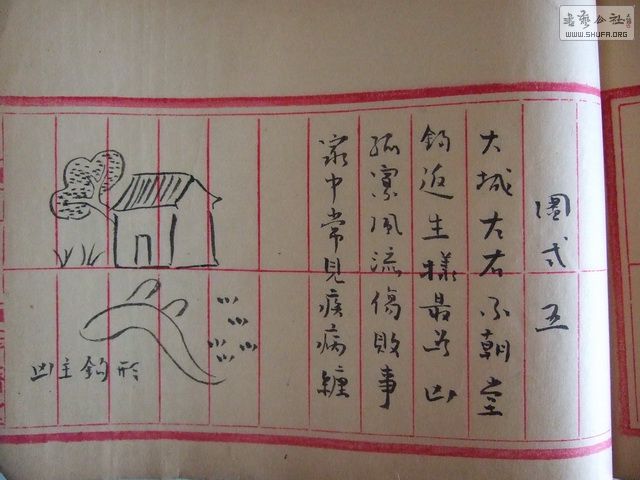 圖式五
大城左右不朝堂
鈎返生樣最為凶
孤寡風流傷敗事
家中常見疾病纏
凶主鈎形
書藝公社
WWW.SHUFA.ORG